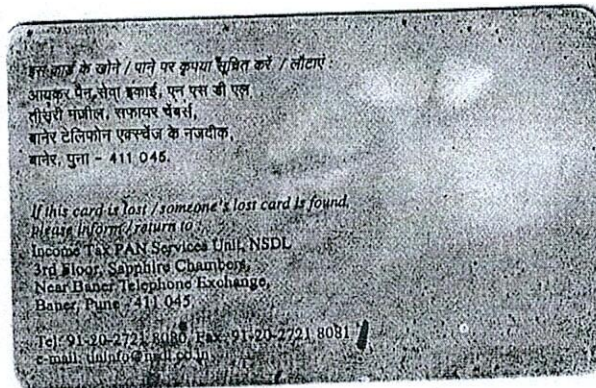 इस कार्ड के खोने / पाने पर कृपया सूचित करें / लौटाएं
आयकर पैन सेवा इकाई, एन एस डी एल
तीसरी मंज़ील, सफायर चेंबर्स,
बानेर टेलिफोन एक्स्चेंज के नजदीक,
बानेर, पुना - 411 045.
If this card is lost / someone's lost card is found,
please inform / return to
Income Tax PAN Services Unit, NSDL
3rd Floor, Sapphire Chambers,
Near Baner Telephone Exchange,
Baner, Pune - 411 045
Tel: 91-20-2721 8080, Fax: 91-20-2721 8081
e-mail: tininfo@nsdl.co.in